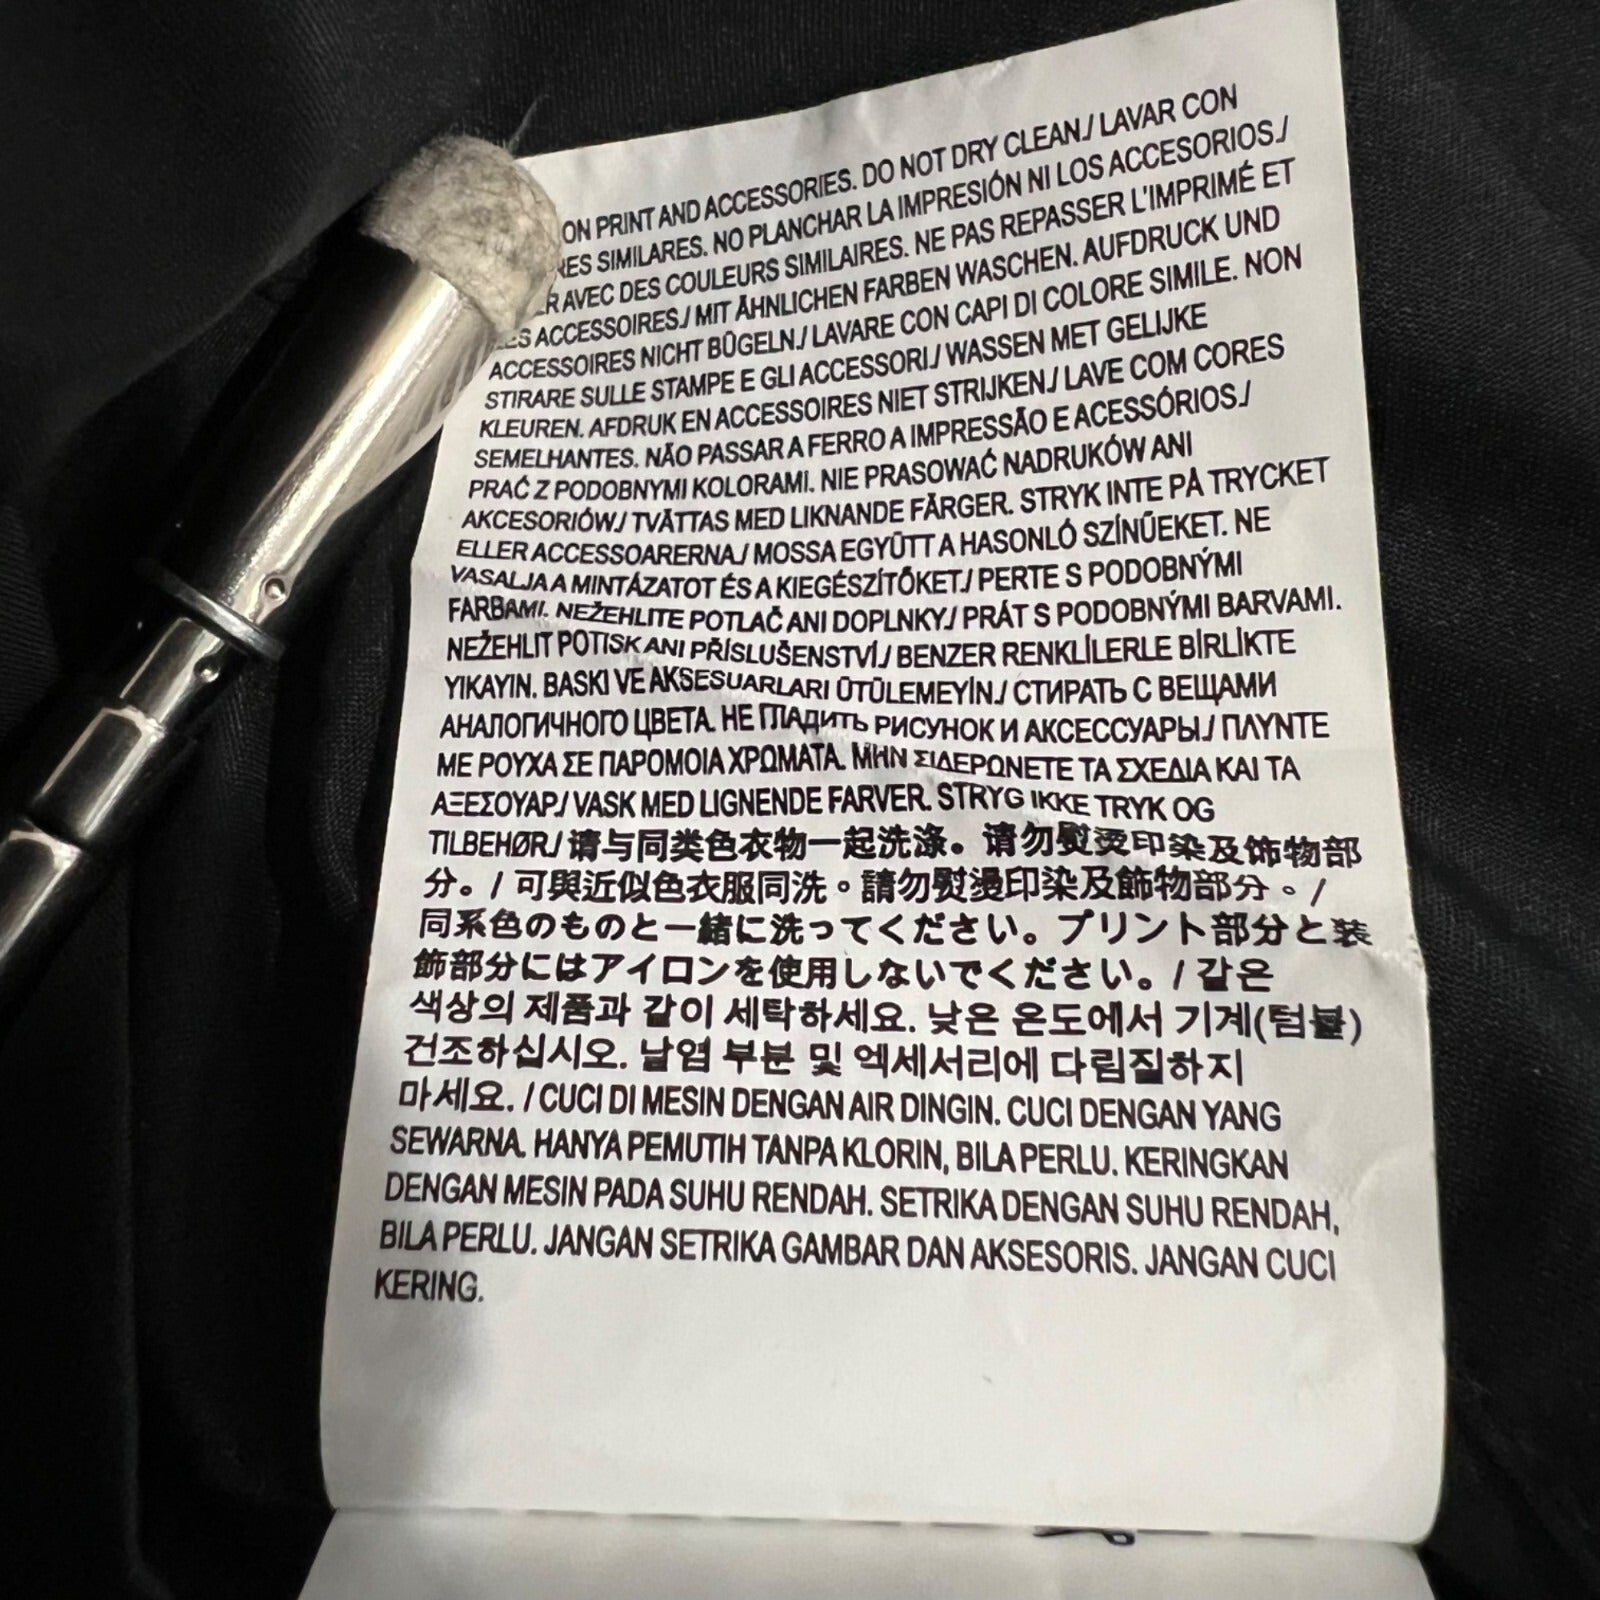 ON PRINT AND ACCESSORIES. DO NOT DRY CLEAN./ LAVAR CON
RES SIMILARES. NO PLANCHAR LA IMPRESIÓN NI LOS ACCESORIOS./
R AVEC DES COULEURS SIMILAIRES. NE PAS REPASSER L'IMPRIMÉ ET
ES ACCESSOIRES./ MIT ÄHNLICHEN FARBEN WASCHEN. AUFDRUCK UND
ACCESSOIRES NICHT BÜGELN./ LAVARE CON CAPI DI COLORE SIMILE. NON
STIRARE SULLE STAMPE E GLI ACCESSORI./ WASSEN MET GELIJKE
KLEUREN. AFDRUK EN ACCESSOIRES NIET STRIJKEN./ LAVE COM CORES
SEMELHANTES. NÃO PASSAR A FERRO A IMPRESSÃO E ACESSÓRIOS./
PRAĆ Z PODOBNYMI KOLORAMI. NIE PRASOWAĆ NADRUKÓW ANI
AKCESORIÓW./ TVÄTTAS MED LIKNANDE FÄRGER. STRYK INTE PÅ TRYCKET
ELLER ACCESSOARERNA./ MOSSA EGYÜTT A HASONLÓ SZÍNŰEKET. NE
VASALJA A MINTÁZATOT ÉS A KIEGÉSZÍTŐKET./ PERTE S PODOBNÝMI
FARBAMI. NEŽEHLITE POTLAČ ANI DOPLNKY./ PRÁT S PODOBNÝMI BARVAMI.
NEŽEHLIT POTISK ANI PŘÍSLUŠENSTVÍ./ BENZER RENKLİLERLE BİRLİKTE
YIKAYIN. BASKI VE AKSESUARLARI ÜTÜLEMEYİN./ СТИРАТЬ С ВЕЩАМИ
АНАЛОГИЧНОГО ЦВЕТА. НЕ ГЛАДИТЬ РИСУНОК И АКСЕССУАРЫ./ ΠΛΥΝΤΕ
ΜΕ ΡΟΥΧΑ ΣΕ ΠΑΡΟΜΟΙΑ ΧΡΩΜΑΤΑ. ΜΗΝ ΣΙΔΕΡΩΝΕΤΕ ΤΑ ΣΧΕΔΙΑ ΚΑΙ ΤΑ
ΑΞΕΣΟΥΑΡ./ VASK MED LIGNENDE FARVER. STRYG IKKE TRYK OG
TILBEHØR./ 请与同类色衣物一起洗涤。请勿熨烫印染及饰物部
分。/ 可與近似色衣服同洗。請勿熨燙印染及飾物部分。/
同系色のものと一緒に洗ってください。プリント部分と装
飾部分にはアイロンを使用しないでください。/ 같은
색상의 제품과 같이 세탁하세요. 낮은 온도에서 기계(텀블)
건조하십시오. 날염 부분 및 엑세서리에 다림질하지
마세요. / CUCI DI MESIN DENGAN AIR DINGIN. CUCI DENGAN YANG
SEWARNA. HANYA PEMUTIH TANPA KLORIN, BILA PERLU. KERINGKAN
DENGAN MESIN PADA SUHU RENDAH. SETRIKA DENGAN SUHU RENDAH,
BILA PERLU. JANGAN SETRIKA GAMBAR DAN AKSESORIS. JANGAN CUCI
KERING.